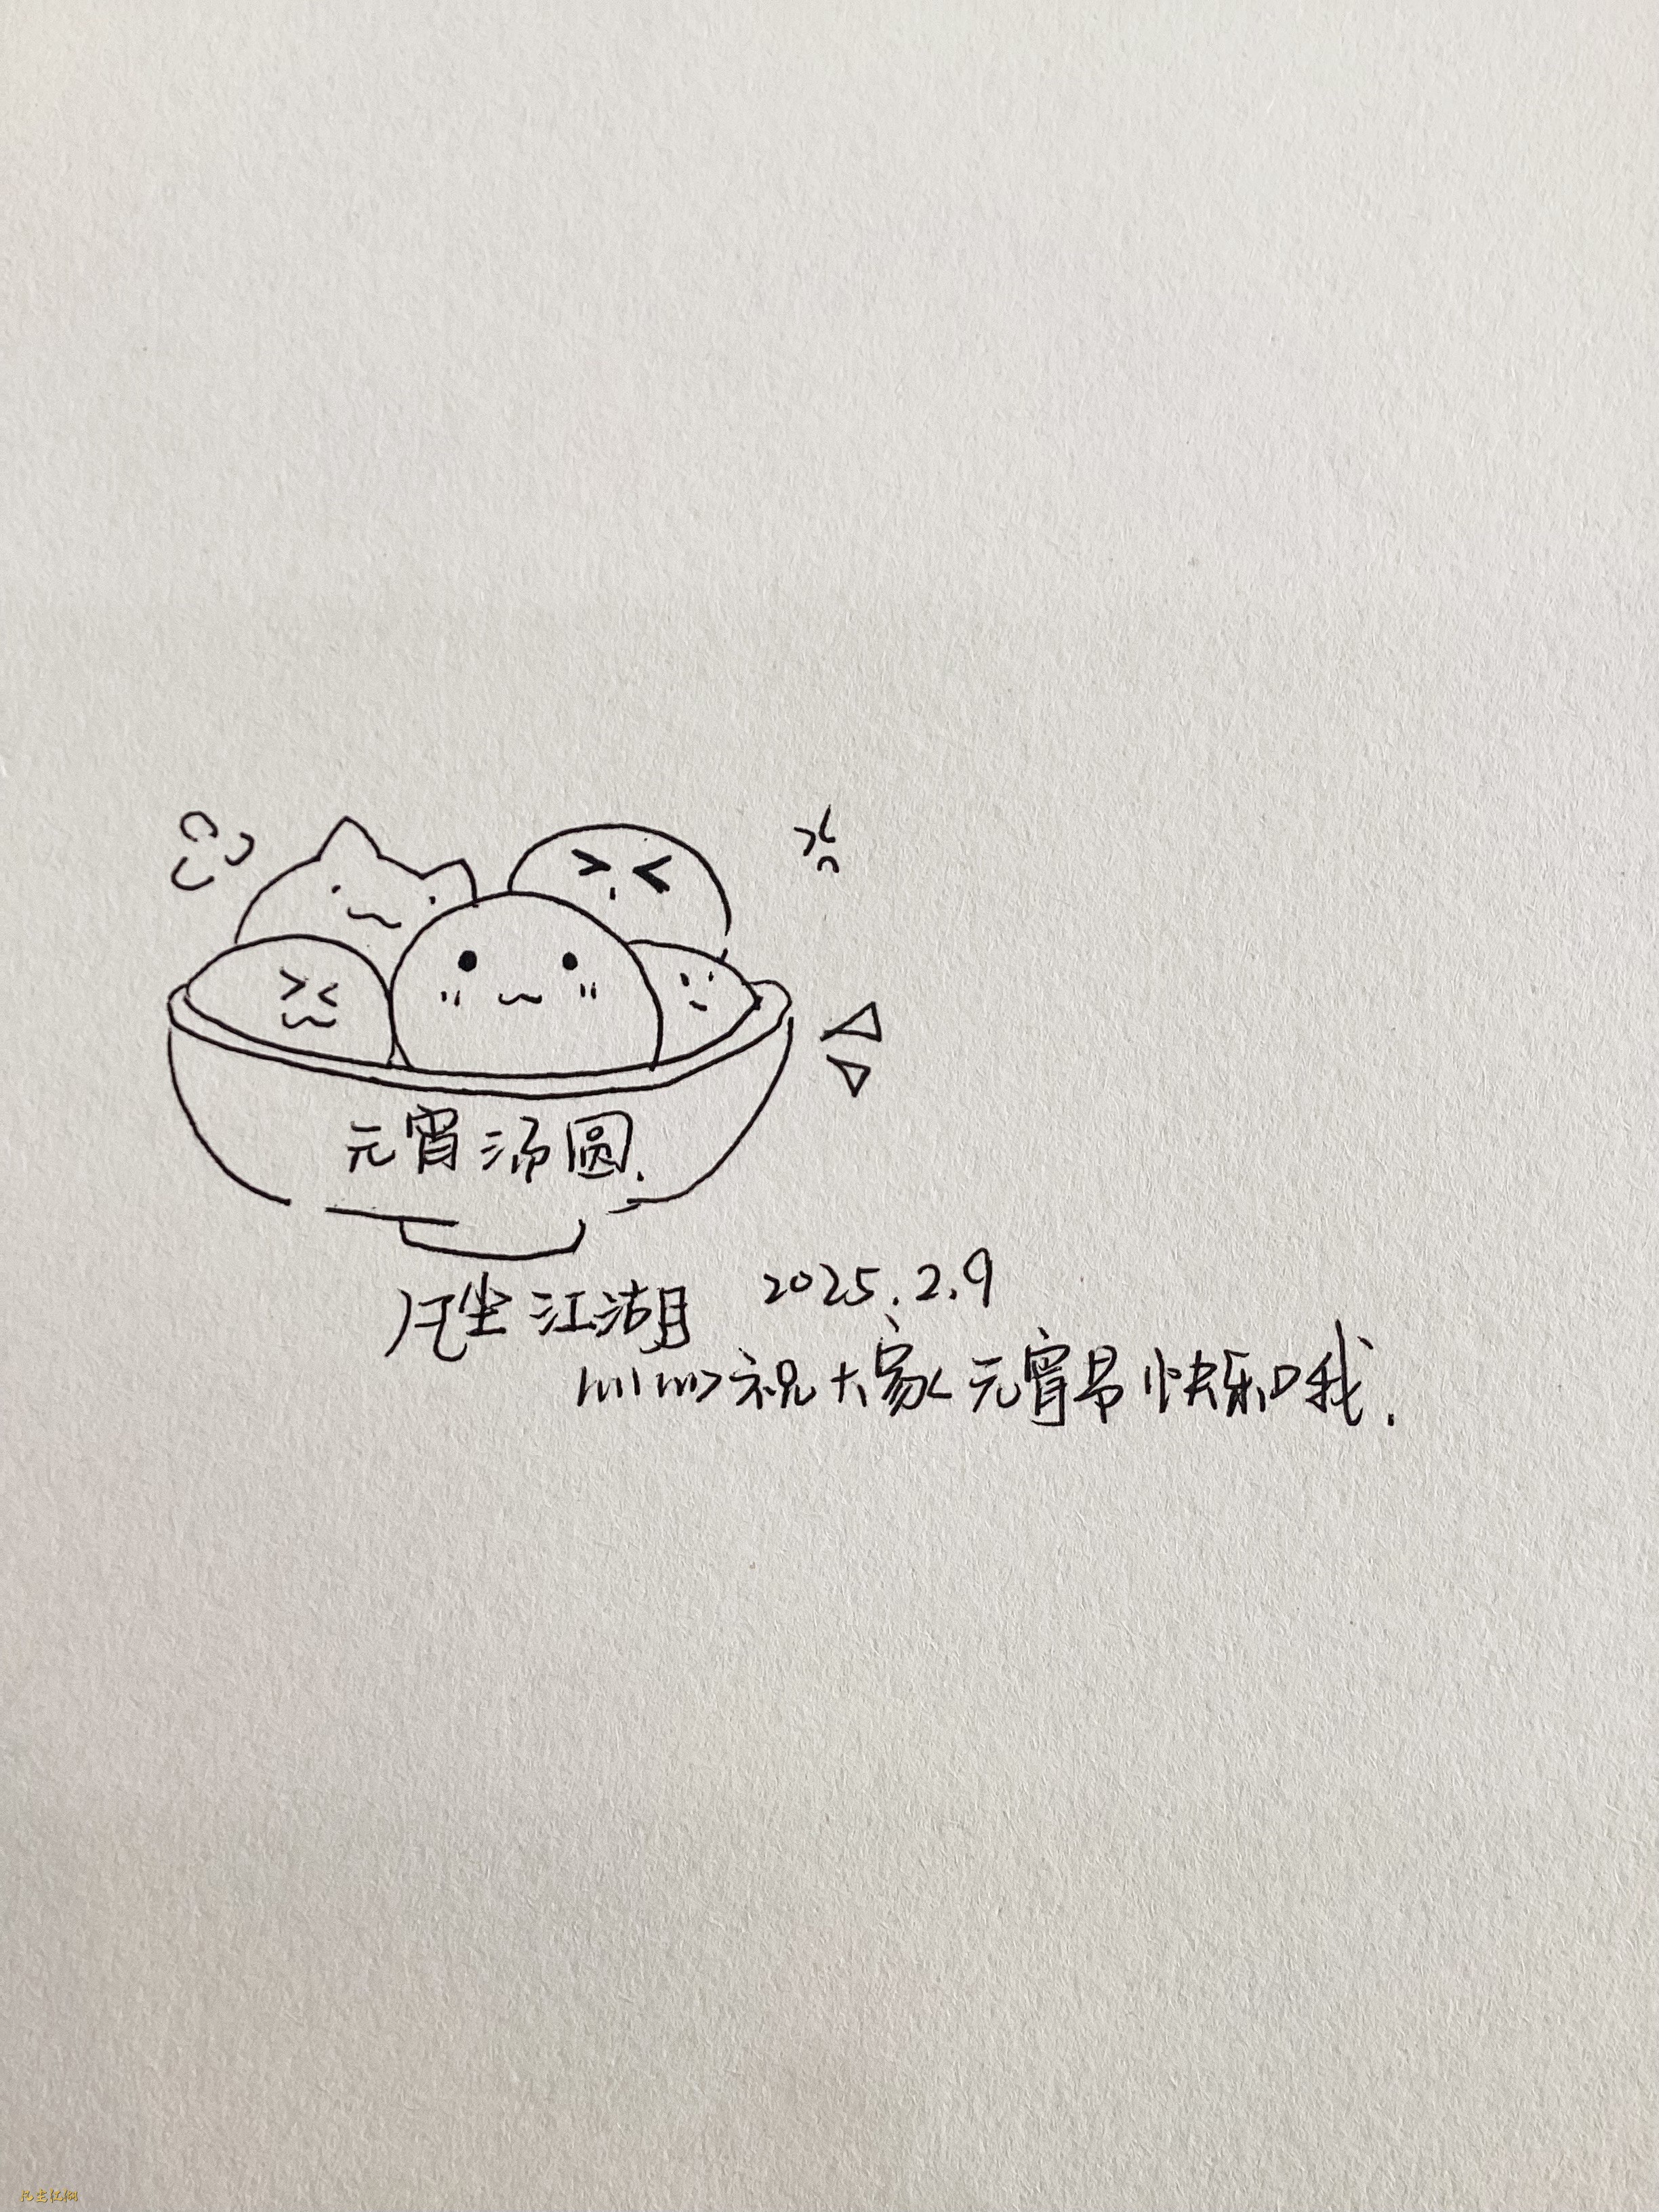 元宵汤圆.
风尘江湖 2025.2.9
祝大家元宵节快乐哦.